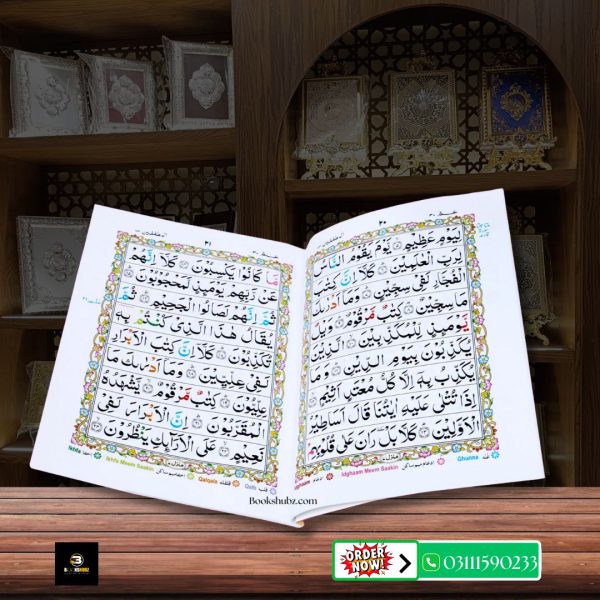 ٢٠
لِيَوْمٍ عَظِيْمٍ ۝ يَّوْمَ يَقُوْمُ النَّاسُ
لِرَبِّ الْعٰلَمِيْنَ ۝ كَلَّآ اِنَّ كِتٰبَ
الْفُجَّارِ لَفِيْ سِجِّيْنٍ ۝ وَمَآ اَدْرٰىكَ
مَا سِجِّيْنٌ ۝ كِتٰبٌ مَّرْقُوْمٌ ۝ وَيْلٌ
يَّوْمَئِذٍ لِّلْمُكَذِّبِيْنَ ۝ الَّذِيْنَ
يُكَذِّبُوْنَ بِيَوْمِ الدِّيْنِ ۝ وَمَا
يُكَذِّبُ بِهٖٓ اِلَّا كُلُّ مُعْتَدٍ اَثِيْمٍ ۝
اِذَا تُتْلٰى عَلَيْهِ اٰيٰتُنَا قَالَ اَسَاطِيْرُ
الْاَوَّلِيْنَ ۝ كَلَّا بَلْ رَانَ عَلٰى قُلُوْبِهِمْ
Idghaam Meem Saakin ادغام میم ساکن Ghunna غنه
٢١
مَّا كَانُوْا يَكْسِبُوْنَ ۝ كَلَّآ اِنَّهُمْ
عَنْ رَّبِّهِمْ يَوْمَئِذٍ لَّمَحْجُوْبُوْنَ ۝
ثُمَّ اِنَّهُمْ لَصَالُوا الْجَحِيْمِ ۝ ثُمَّ
يُقَالُ هٰذَا الَّذِيْ كُنْتُمْ بِهٖ
تُكَذِّبُوْنَ ۝ كَلَّآ اِنَّ كِتٰبَ الْاَبْرَارِ
لَفِيْ عِلِّيِّيْنَ ۝ وَمَآ اَدْرٰىكَ مَا
عِلِّيُّوْنَ ۝ كِتٰبٌ مَّرْقُوْمٌ ۝ يَّشْهَدُهُ
الْمُقَرَّبُوْنَ ۝ اِنَّ الْاَبْرَارَ لَفِيْ
نَعِيْمٍ ۝ عَلَى الْاَرَآئِكِ يَنْظُرُوْنَ ۝
Ikhfa اخفا Ikhfa Meem Saakin اخفا میم ساکن Qalqala قلقله Qalb قلب
Bookshubz.com
ORDER NOW!
03111590233